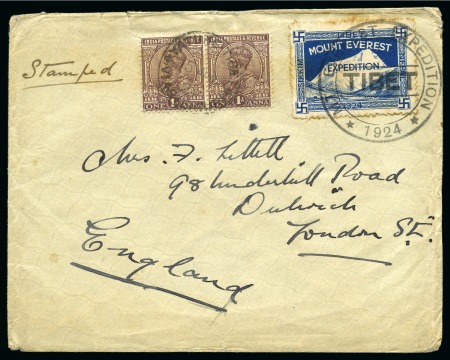 Stamped
INDIA POSTAGE & REVENUE
INDIA POSTAGE & REVENUE
ONE 1A ANNA
ONE 1A ANNA
MOUNT EVEREST
EXPEDITION
1924
MT. EVEREST EXPEDITION
TIBET
★ 1924 ★
Mrs. F. Littell
98 Underhill Road
Dulwich
London S.E.
England